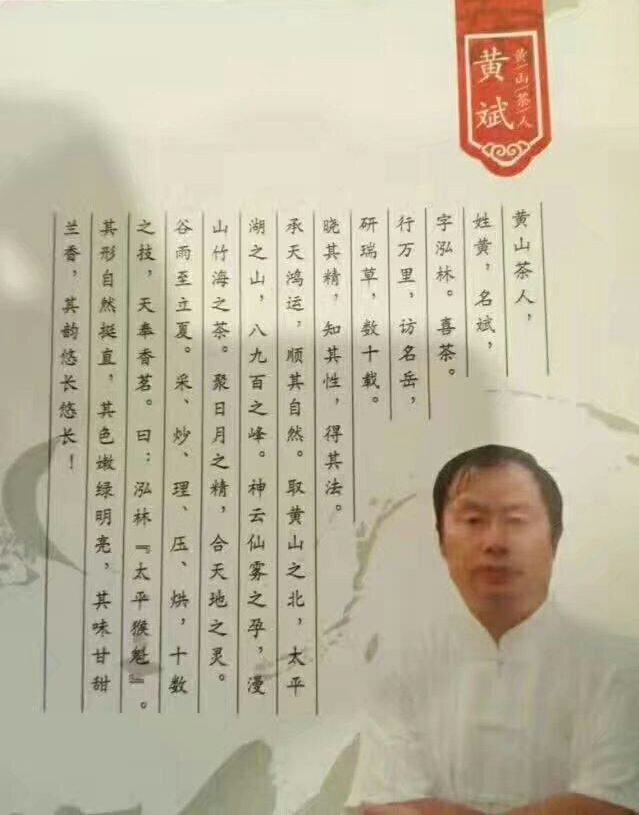 黄山茶人
黄斌
黄山茶人，
姓黄，名斌，
字泓林。喜茶。
行万里，访名岳，
研瑞草，数十载。
晓其精，知其性，得其法。
承天鸿运，顺其自然。取黄山之北，太平
湖之山，八九百之峰。神云仙雾之孕，漫
山竹海之茶。聚日月之精，合天地之灵。
谷雨至立夏。采、炒、理、压、烘，十数
之技，天奉香茗。曰：泓林『太平猴魁』。
其形自然挺直，其色嫩绿明亮，其味甘甜
兰香，其韵悠长悠长！